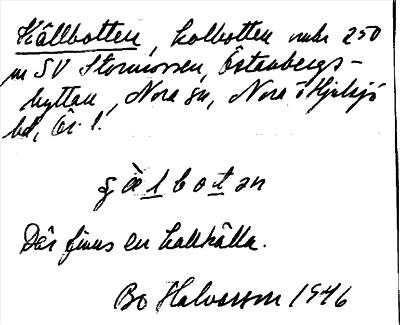 Källbotten, kolbotten omkr 250
m SV Stormossen, Östanbergs-
hyttan, Nora sn, Nora o Hjulsjö
bd, Ör. l.
çä̀lbotən
Där finns en kallkälla.
Bo Halvarsson 1946